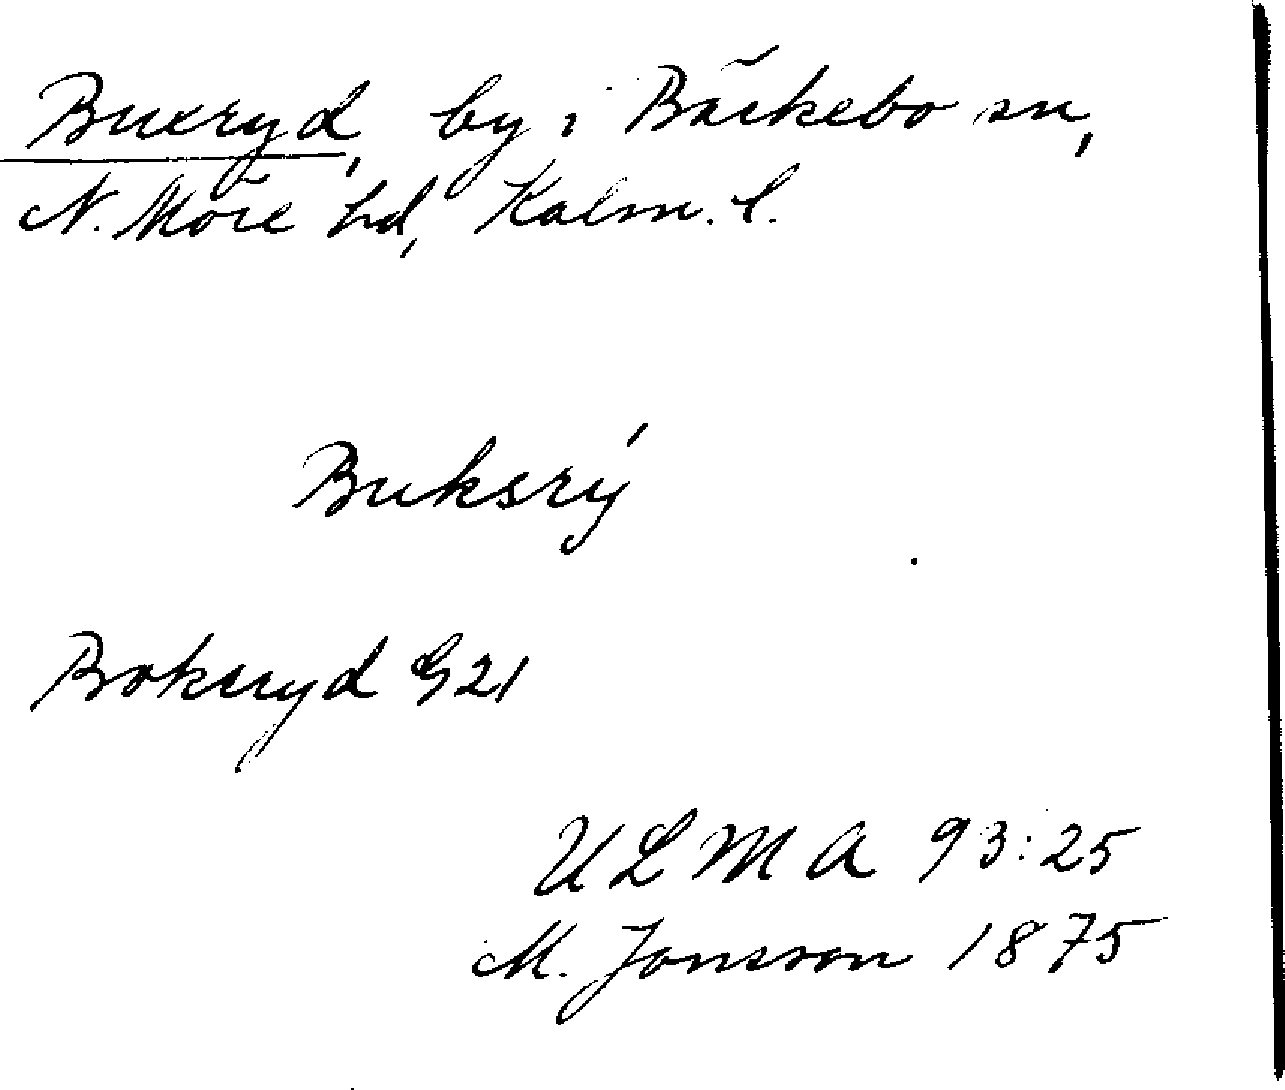 Buxryd, by i Bäckebo sn,
N. Möre hd, Kalm. l.
Buksrý
Boksryd G21
ULMA 93:25
M. Jonsson 1875